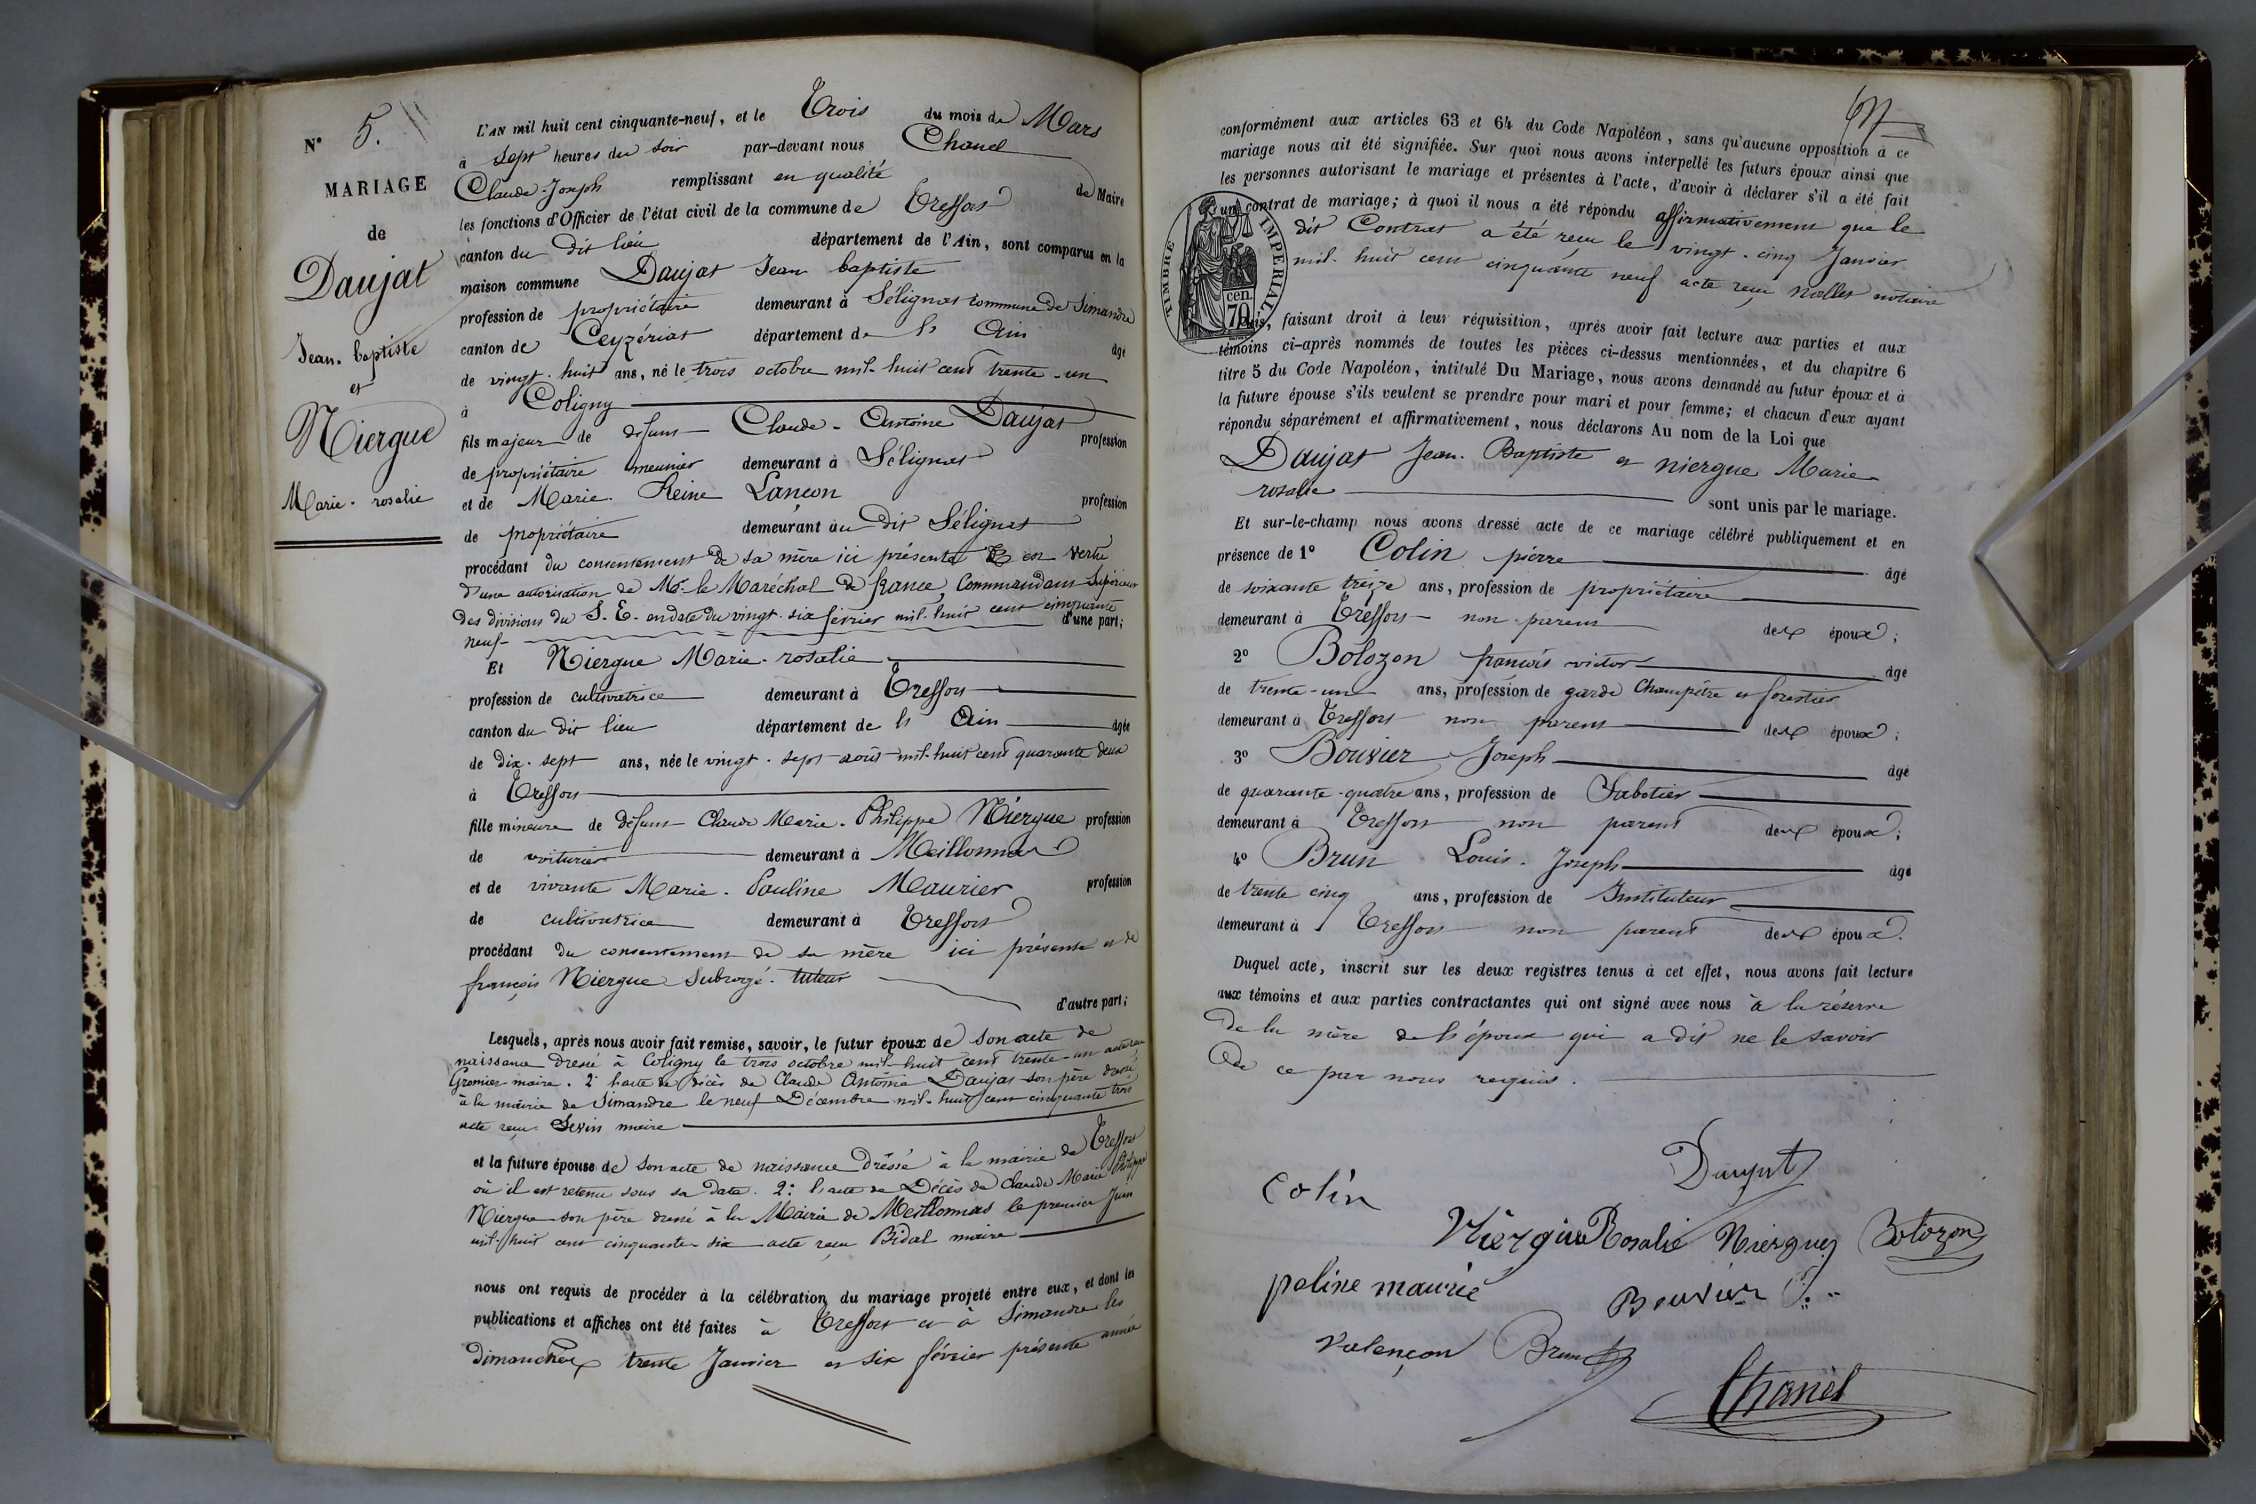 N° 5.
MARIAGE
de
Daujat
Jean-baptiste
et
Niergue
Marie-rosalie
L'AN mil huit cent cinquante-neuf, et le Trois du mois de Mars
à sept heures du soir par-devant nous Chanel
Claude-Joseph remplissant en qualité de Maire
les fonctions d'Officier de l'état civil de la commune de Treffort
canton du dit lieu département de l'Ain, sont comparus en la
maison commune Daujat Jean baptiste
profession de propriétaire demeurant à Sélignat commune de Simandre
canton de Ceyzériat département de l'Ain âgé
de vingt-huit ans, né le trois octobre mil-huit cent trente-un
à Coligny
fils majeur de défunt Claude-Antoine Daujat profession
de propriétaire meunier demeurant à Sélignat
et de Marie Reine Lançon profession
de propriétaire demeurant au dit Sélignat
procédant du consentement de sa mère ici présente et en vertu
d'une autorisation de Mr. le Maréchal de france, Commandant Supérieur
des divisions du S. E. en date du vingt-six février mil-huit cent cinquante
neuf d'une part;
Et Niergue Marie-rosalie
profession de cultivatrice demeurant à Treffort
canton du dit lieu département de l'Ain âgée
de dix-sept ans, née le vingt-sept août mil-huit cent quarante deux
à Treffort
fille mineure de défunt Claude Marie-Philippe Niergue profession
de voiturier demeurant à Meillonnas
et de vivante Marie-Pauline Maurier profession
de cultivatrice demeurant à Treffort
procédant du consentement de sa mère ici présente et de
françois Niergue Subrogé-tuteur
d'autre part;
Lesquels, après nous avoir fait remise, savoir, le futur époux de son acte de
naissance dressé à Coligny le trois octobre mil-huit cent trente-un acte reçu
Gromier maire. 2° l'acte de décès de Claude Antoine Daujat son père dressé
à la mairie de Simandre le neuf Décembre mil-huit cent cinquante trois
acte reçu Sevin maire
et la future épouse de son acte de naissance dressé à la mairie de Treffort
où il est retenu sous sa date. 2° l'acte de Décès de Claude Marie Philippe
Niergue son père dressé à la Mairie de Meillonnas le premier Juin
mil-huit cent cinquante-six acte reçu Bidal maire
nous ont requis de procéder à la célébration du mariage projeté entre eux, et dont les
publications et affiches ont été faites à Treffort et à Simandre les
dimanches trente Janvier et six février présente année
conformément aux articles 63 et 64 du Code Napoléon, sans qu'aucune opposition à ce
mariage nous ait été signifiée. Sur quoi nous avons interpellé les futurs époux ainsi que
les personnes autorisant le mariage et présentes à l'acte, d'avoir à déclarer s'il a été fait
un contrat de mariage; à quoi il nous a été répondu affirmativement que le
dit Contrat a été reçu le vingt-cinq Janvier
mil-huit cent cinquante neuf acte reçu Nallet notaire
TIMBRE IMPERIAL
70 cen.
Puis, faisant droit à leur réquisition, après avoir fait lecture aux parties et aux
témoins ci-après nommés de toutes les pièces ci-dessus mentionnées, et du chapitre 6
titre 5 du Code Napoléon, intitulé Du Mariage, nous avons demandé au futur époux et à
la future épouse s'ils veulent se prendre pour mari et pour femme; et chacun d'eux ayant
répondu séparément et affirmativement, nous déclarons Au nom de la Loi que
Daujat Jean-Baptiste et niergue Marie
rosalie sont unis par le mariage.
Et sur-le-champ nous avons dressé acte de ce mariage célébré publiquement et en
présence de 1° Colin pierre âgé
de soixante treize ans, profession de propriétaire
demeurant à Treffort non parent des époux;
2° Bolozon françois victor âgé
de trente-un ans, profession de garde Champêtre et forestier
demeurant à Treffort non parent des époux;
3° Bouvier Joseph âgé
de quarante-quatre ans, profession de Sabotier
demeurant à Treffort non parent des époux;
4° Brun Louis-Joseph âgé
de trente cinq ans, profession de Instituteur
demeurant à Treffort non parent des époux.
Duquel acte, inscrit sur les deux registres tenus à cet effet, nous avons fait lecture
aux témoins et aux parties contractantes qui ont signé avec nous à la réserve
de la mère de l'époux qui a dit ne le savoir
de ce par nous requis.
Daujat
Colin
Niergue Rosalie Niergue Bolozon
poline maurié
Bouvier J.
valençon Brun
Chanel